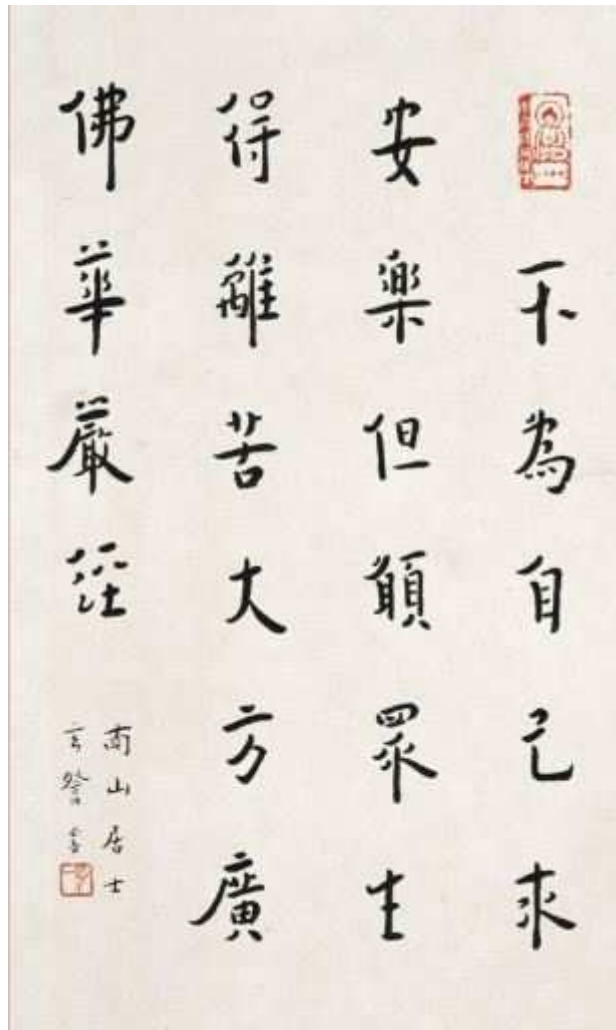 不為自己求
安樂但願眾生
得離苦大方廣
佛華嚴經
南山居士
玄謦書